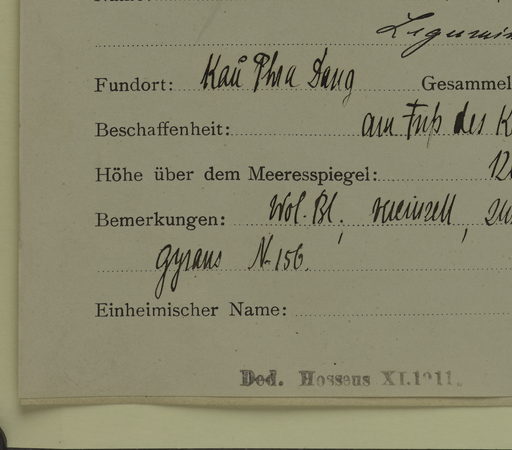 Legumin
Fundort: Kau Phra Dang Gesammel
Beschaffenheit: am Fuß des K
Höhe über dem Meeresspiegel: 12
Bemerkungen: Bl., vereinzelt,
gyrans N 156.
Einheimischer Name:
Ded. Hosseus XI.1911.